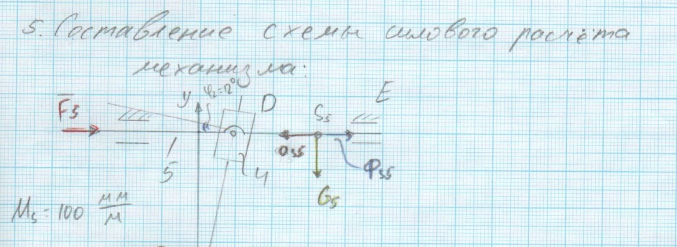 5. Составление схемы силового расчёта
механизма:
F5
y
φ3=12°
D
S5
E
5
4
a55
ΦS5
G5
Ms=100 мм/м